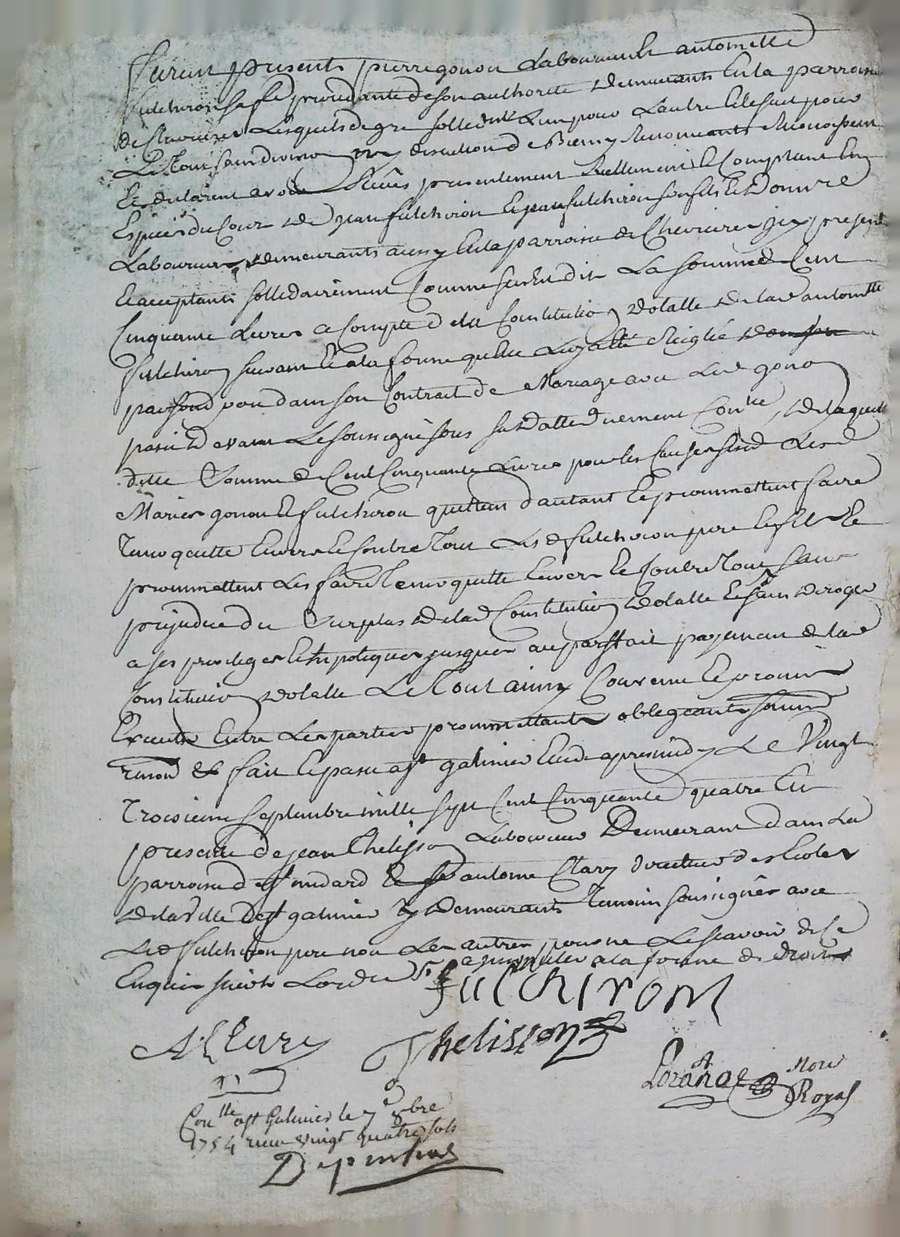 Furent presents pierre gonon Laboureur et antoinette
fulchiron sa fe procedante de son authorité demeurants En la parroisse
de Chevrieres Lesquels de gré sollidt L'un pour L'autre Et le seul pour
Le tout sans division ny discution de Biens y Renonceants
Et declarent avoir Receus presentement Reellement Et Comptant En
Especes du Cour de Jean fulchiron Et Jean fulchiron son fils Et Donnre
Laboureurs demeurants aussy En la parroisse de Chevrieres Icy presents
Et acceptants sollidairement Comme sus Est dit La somme de Cent
Cinquante Livres a Compte de la Constitution dotalle de lad antoinette
fulchiron suivant Et a la forme quelle Luy a esté Reiglée
par fond pour dans son Contrat de Mariage avec Led gonon
passé pd evant Le soussigné sous sa datte duement Conlle, de laquelle
ditte Somme de Cent Cinquante Livres pour les Causes susd Lesd
Mariés gonon Et fulchiron quittent d'autant Et prommettent faire
tenir quitte Envers Et Contre tous Lesd fulchiron pere Et fils Et le
prommettent Les faire tenir quitte Envers Et Contre tous sans
prejudice du Surplus de lad Constitution dotalle Et sans deroger
a ses privileges Et hypoteques jusques au parffait payement de lad
Constitution dotalle Le tout ainsy Convenu Et promis
Executer Entre Les parties prommettants obligeants soumet
renond & fait Et passé a st galmier Etude apres midy Le Vingt
Troisieme septembre mille sept Cent Cinquante quatre En
presence de jean Thelisson Laboureur Demeurant dans La
parroisse de st medard & sr antoine Clary directeur des Ecoles
de la Ville de st galmier y demeurants temoins soussignés avec
Led fulchiron pere non Les autres pour ne Le scavoir de Ce
Enquis suivt Lord a controller a la forme de Droit
fulchiron
A Clary Thelisson
Lorange Nore
Royal
Conlle a st Galmier le 7e 8bre
1754 reçu vingt quatre sols